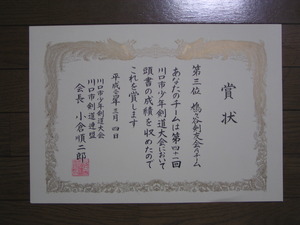 賞状
第三位 鳩ヶ谷剣友会Aチーム
あなたのチームは第四十一回
川口市少年剣道大会において
頭書の成績を収めたので
これを賞します
平成二十四年三月四日
川口市少年剣道大会
川口市剣道連盟
会長 小倉順二郎